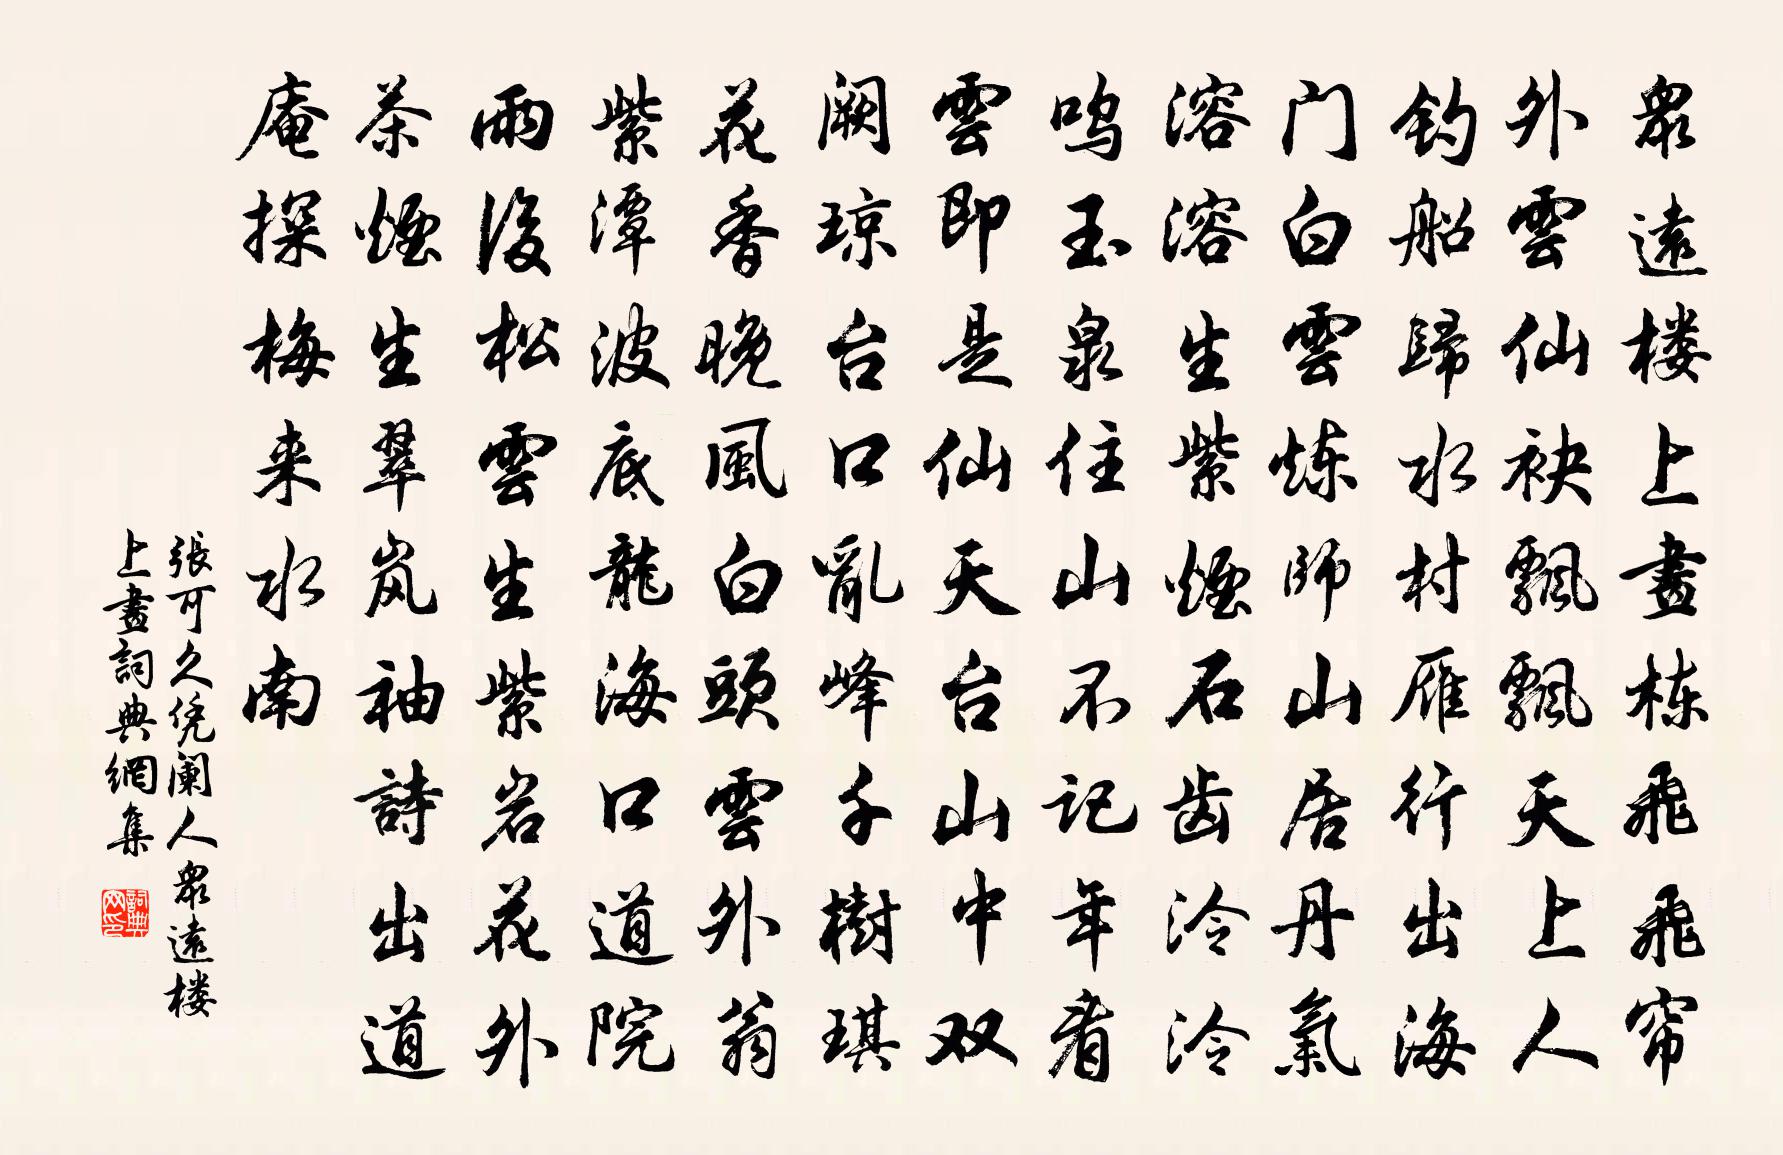 眾遠楼上畫栋飛飛帘
外雲仙袂飄飄天上人
钓船歸水村雁行出海
门白雲炼師山居丹氣
溶溶生紫煙石齿泠泠
鸣玉泉住山不记年看
雲即是仙天台山中双
阙琼台口亂峰千樹琪
花香晚風白頭雲外翁
紫潭波底龍海口道院
雨後松雲生紫岩花外
茶煙生翠岚袖詩出道
庵探梅来水南
張可久凭阑人眾遠楼
上畫詞典網集
詞典网